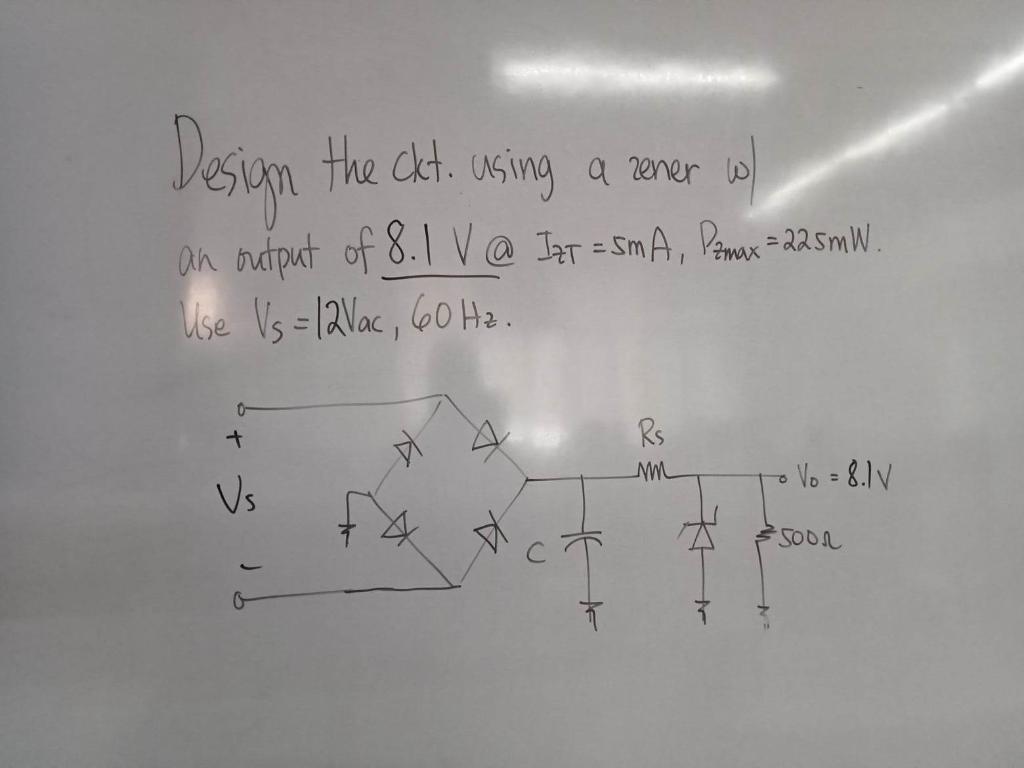 Design the ckt. using a zener w/
an output of 8.1 V @ IZT = 5mA, Pzmax = 225mW.
Use Vs = 12Vac, 60 Hz.
+
Vs
-
Rs
C
Vo = 8.1V
500Ω